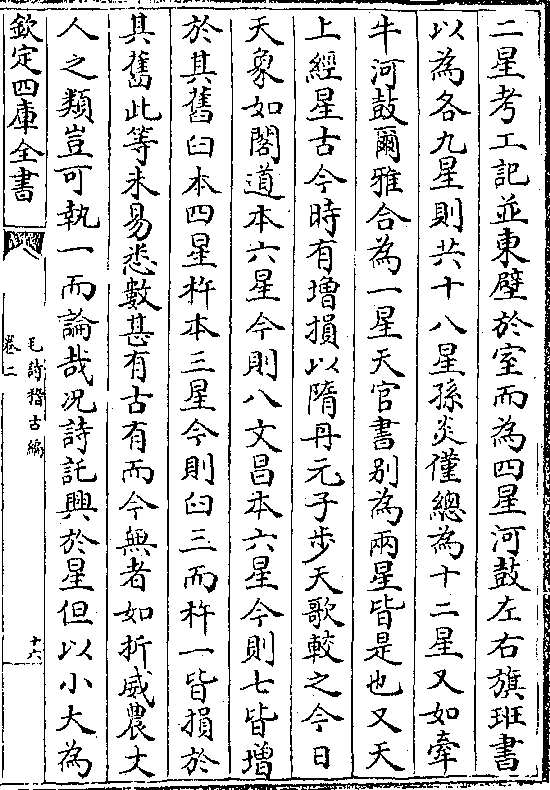 二星考工記並東壁於室而為四星河鼓左右旗班書
以為各九星則共十八星孫炎僅總為十二星又如牽
牛河鼓爾雅合為一星天官書别為兩星皆是也又天
上經星古今時有增損以隋丹元子步天歌較之今日
天象如閣道本六星今則八文昌本六星今則七皆增
於其舊臼本四星杵本三星今則臼三而杵一皆損於
其舊此等未易悉數甚有古有而今無者如折威農丈
人之類豈可執一而論哉况詩託興於星但以小大為
欽定四庫全書
毛詩稽古編
卷二
十六